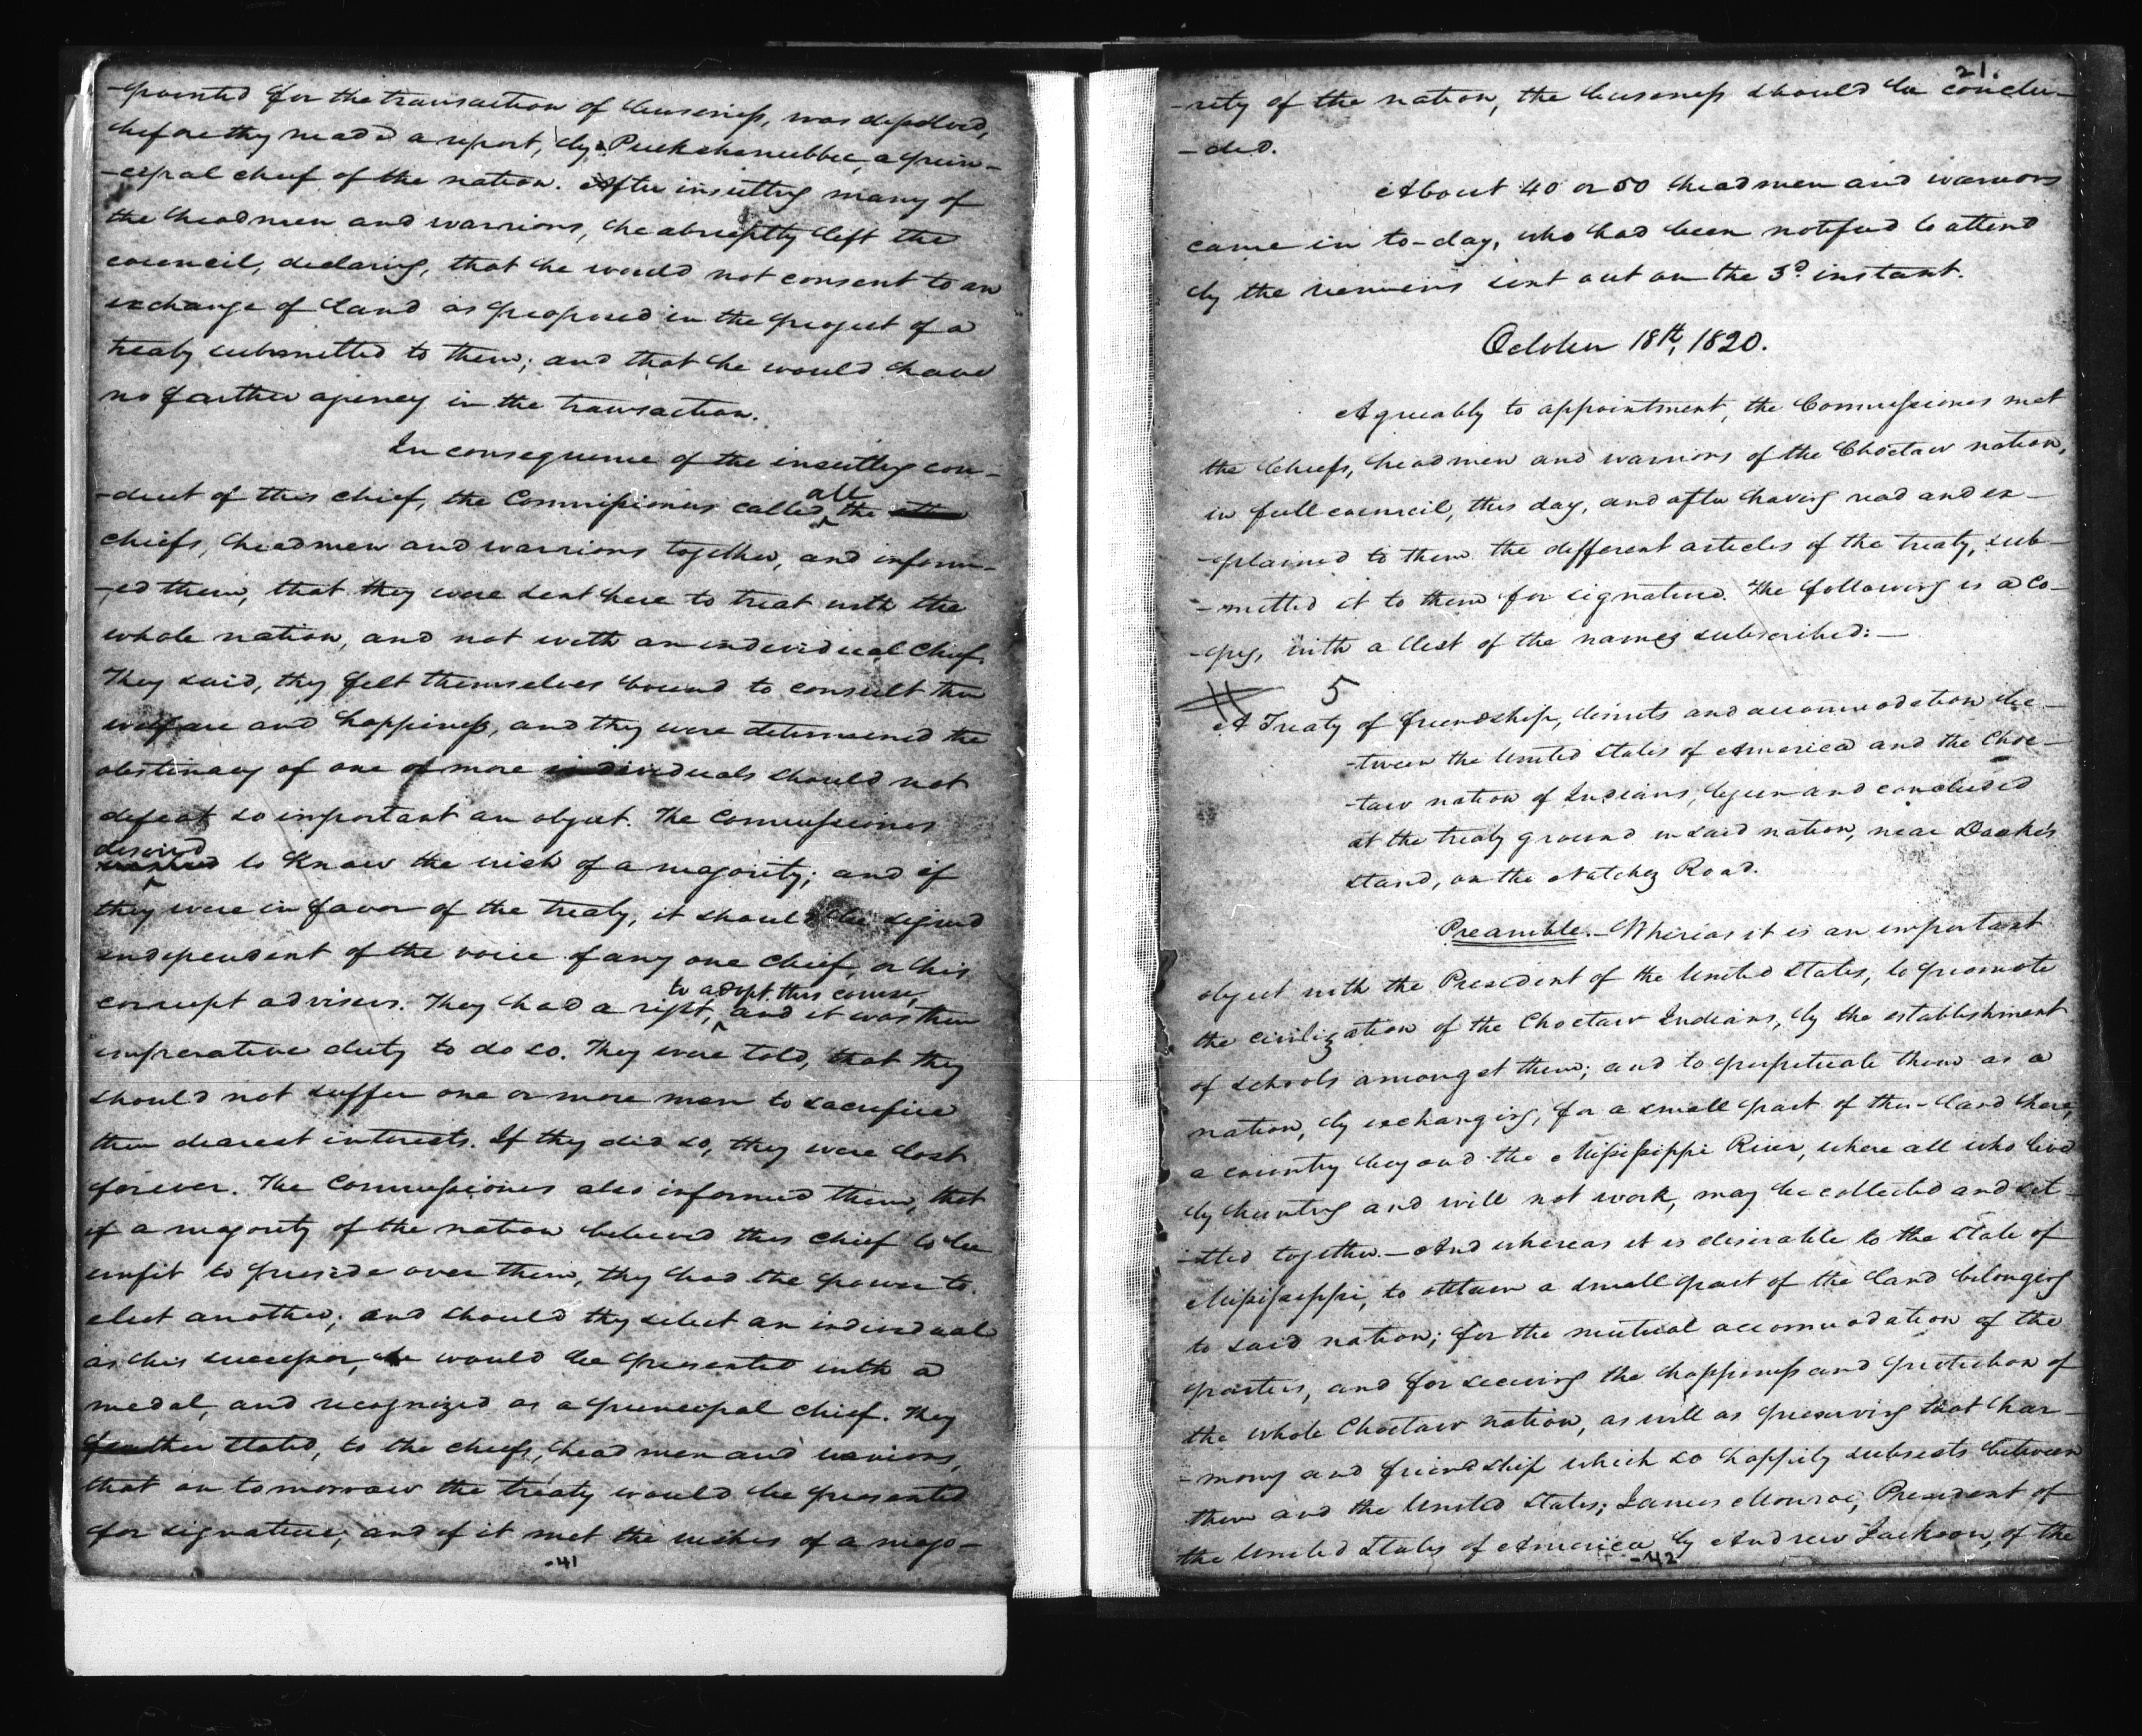 -pointed for the transaction of business, was dissolved,
before they made a report, by Puckshenubbee, a prin-
-cipal chief of the nation. After insulting many of
the headmen and warriors, he abruptly left the
council, declaring, that he would not consent to an
exchange of land as proposed in the project of a
treaty submitted to them; and that he would have
no farther agency in the transaction.
In consequence of the insulting con-
-duct of this chief, the Commissioners called all the
chiefs, headmen and warriors together, and inform-
-ed them, that they were sent here to treat with the
whole nation, and not with an individual Chief.
They said, they felt themselves bound to consult their
welfare and happiness, and they were determined the
obstinacy of one or more individuals should not
defeat so important an object. The Commissioners
desired to know the wish of a majority; and if
they were in favor of the treaty, it should be signed
independent of the voice of any one chief, or his
corrupt advisers. They had a right, to adopt this course, and it was their
imperative duty to do so. They were told, that they
should not suffer one or more men to sacrifice
their dearest interests. If they did so, they were lost
forever. The Commissioners also informed them, that
if a majority of the nation believed this chief to be
unfit to preside over them, they had the power to
elect another; and should they select an individual
as his successor, he would be presented with a
medal, and recognized as a principal chief. They
farther stated, to the chiefs, headmen and warriors,
that on tomorrow the treaty would be presented
for signature; and if it met the wishes of a majo-
-41
21.
-rity of the nation, the business should be conclu-
-ded.
About 40 or 50 headmen and warriors
came in to-day, who had been notified to attend
by the runners sent out on the 3d instant.
October 18th, 1820.
Agreeably to appointment, the Commissioners met
the Chiefs, headmen and warriors of the Choctaw nation,
in full council, this day, and after having read and ex-
-plained to them the different articles of the treaty, sub-
-mitted it to them for signature. The following is a co-
-py, with a list of the names subscribed:—
5
A Treaty of friendship, limits and accommodation be-
-tween the United States of America and the Choc-
-taw nation of Indians, begun and concluded
at the treaty ground in said nation, near Doake's
stand, on the Natchez Road.
Preamble.—Whereas it is an important
object with the President of the United States, to promote
the civilization of the Choctaw Indians, by the establishment
of schools amongst them; and to perpetuate them as a
nation, by exchanging, for a small part of their land here,
a country beyond the Mississippi River, where all who live
by hunting and will not work, may be collected and set-
-tled together.—And whereas it is desirable to the State of
Mississippi, to obtain a small part of the land belonging
to said nation; for the mutual accommodation of the
parties, and for securing the happiness and protection of
the whole Choctaw nation, as well as preserving that har-
-mony and friendship which so happily subsists between
them and the United States; James Monroe, President of
the United States of America by Andrew Jackson, of the
-42